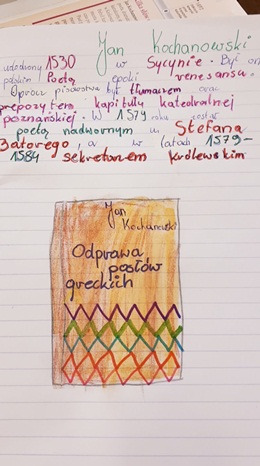 Jan Kochanowski
urodzony 1530 w Sycynie. Był on
polskim Poetą epoki renesansu.
Oprócz pisarstwa był tłumaczem oraz
prepozytem kapituły katedralnej
poznańskiej. W 1579 roku został
poetą nadwornym u Stefana
Batorego, a w latach 1579-
1584 sekretarzem królewskim
Jan
Kochanowski
Odprawa
posłów
greckich